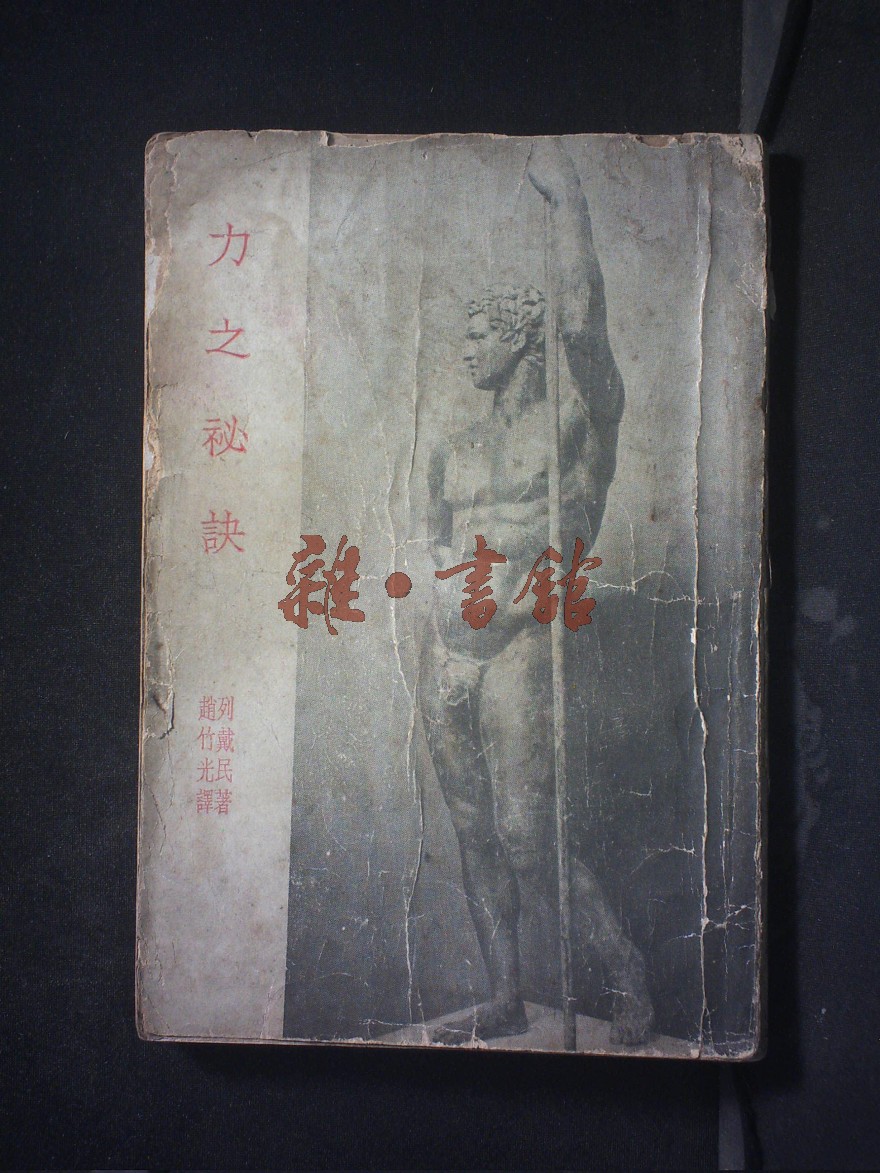 力之祕訣
列戴民著
趙竹光譯
雜·書館